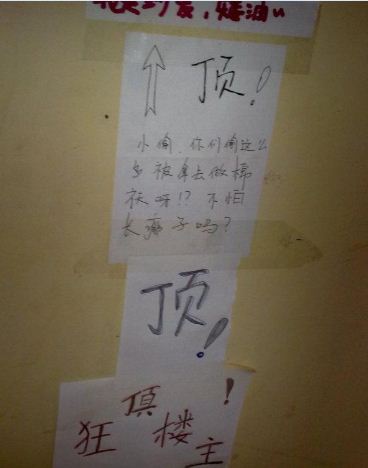 ↑ 顶!
小偷,你们偷这么
多被拿去做棉
袄呀!? 不怕
长痱子吗?
顶!
狂頂楼主!